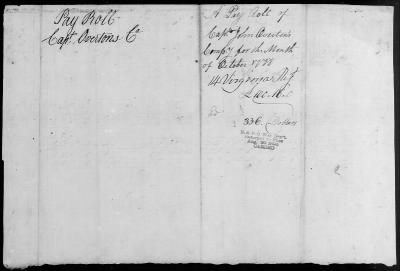 Pay Roll
Capt. Overtons Co
A Pay Roll of
Capt John Overton's
Compy for the Month
of October 1778
14 Virginia Regt
336 Dollars